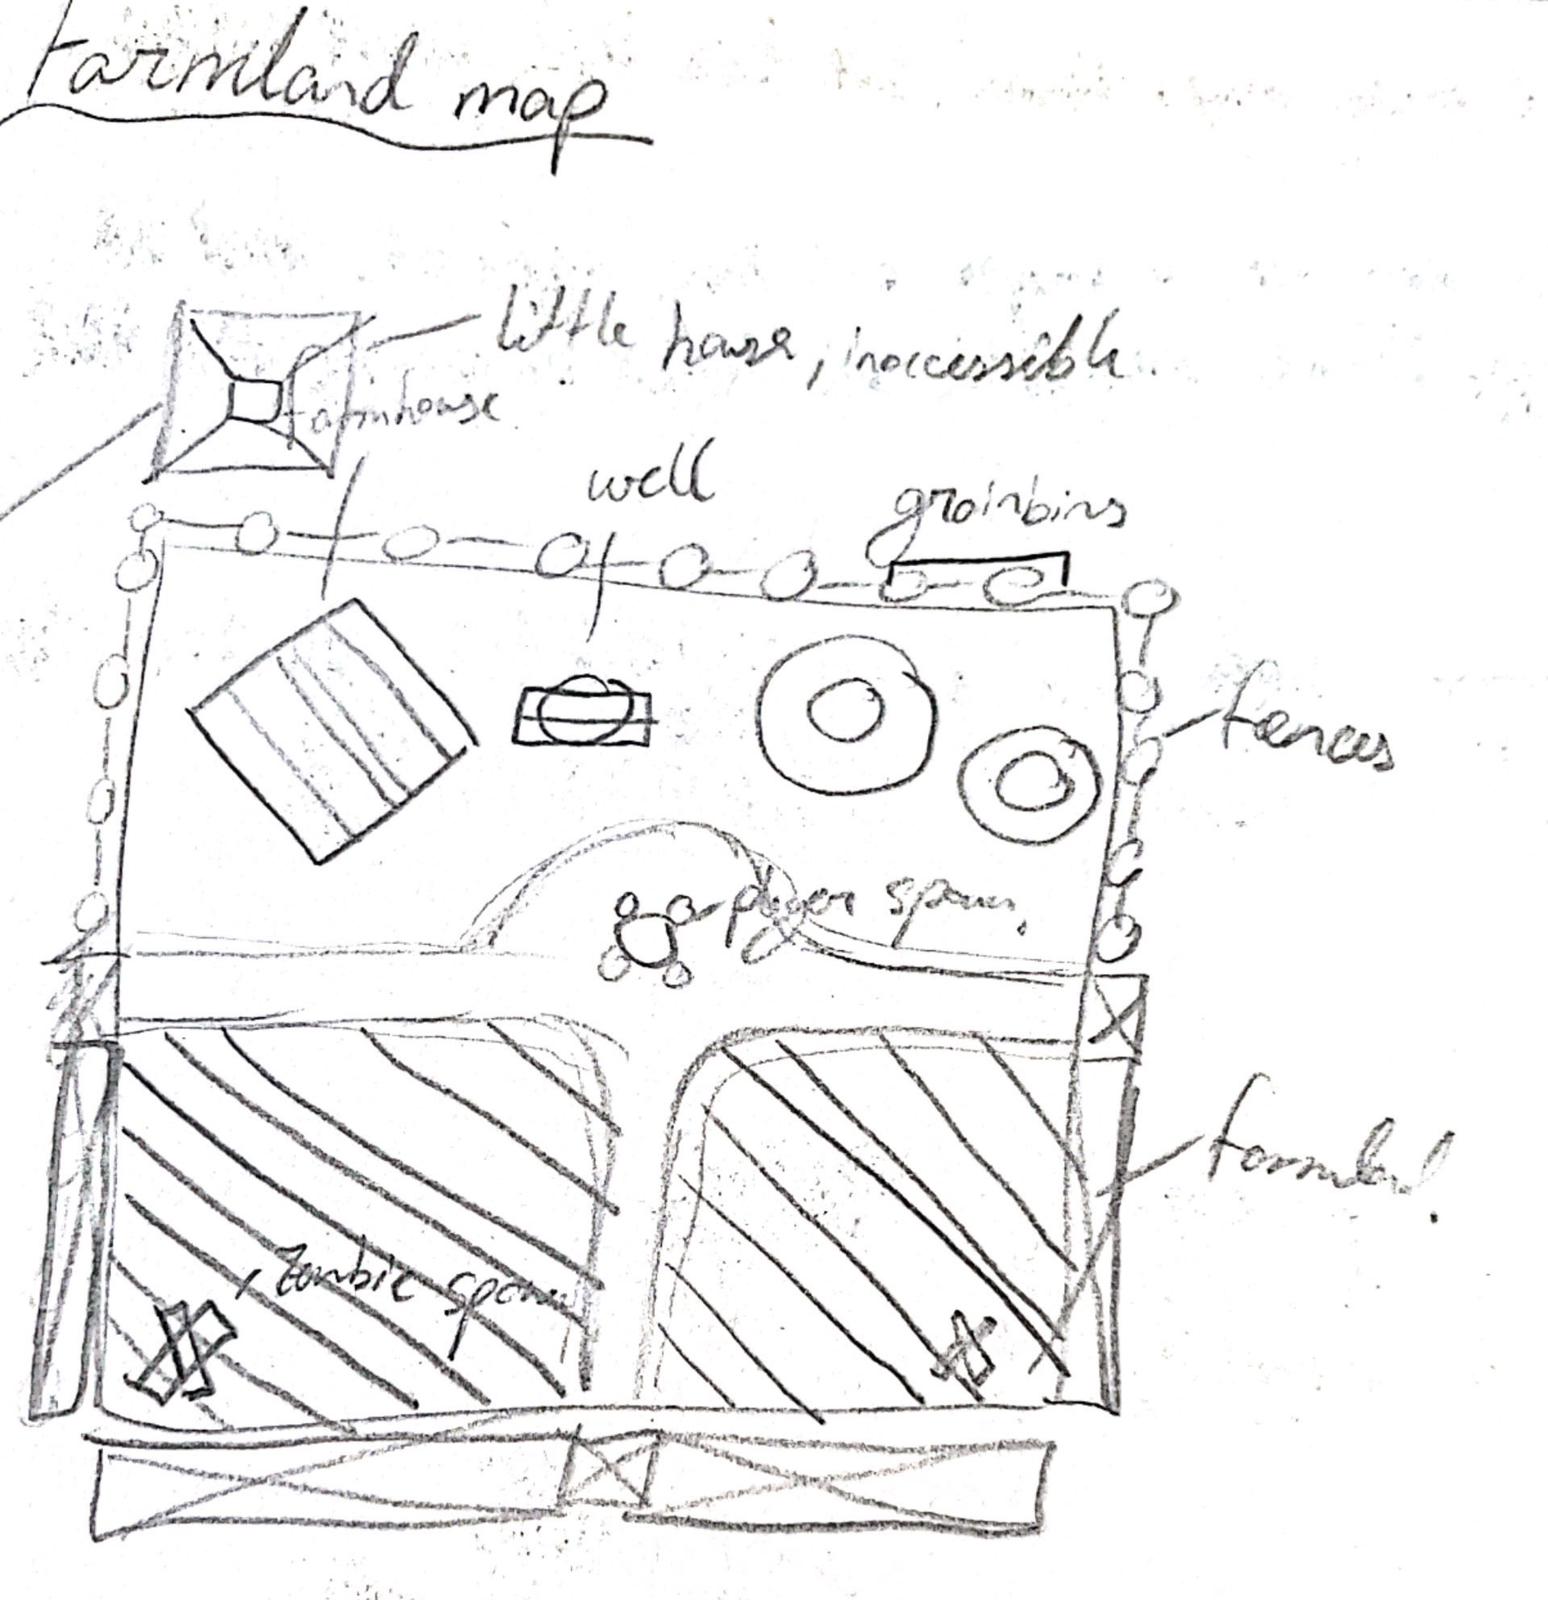 Farmland map
Little house, inaccessible.
farmhouse
well
grainbins
fences
player spawn
farmland.
Zombie spawn